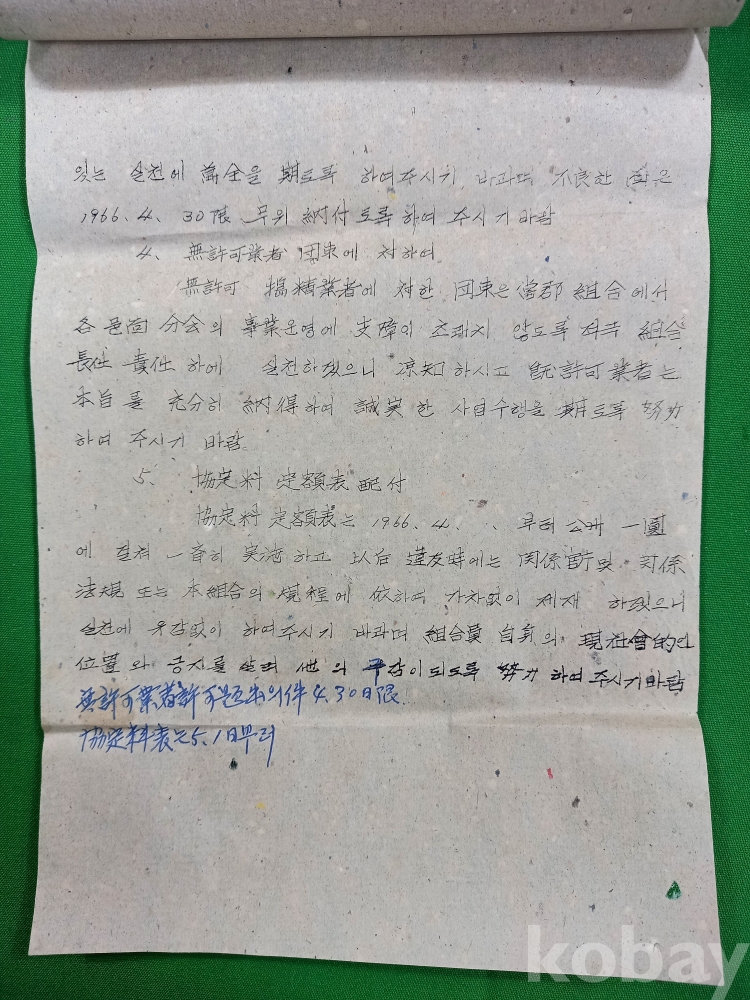 있는 실천에 萬全을 期토록 하여주시기 바라며 不良한 面은
1966. 4. 30限 무위 納付토록하여 주시기 바람
4. 無許可業者 団束에 対하여
無許可 搗精業者에 対한 団束은 当郡 組合에서
各 邑面 分会의 事業运営에 支障이 초래치 않도록 組合
長任 責任 하에 실천하겠으니 凉知하시고 旣許可業者는
本旨를 充分히 納得하여 誠実한 사업수행을 期토록 努力
하여 주시기 바람
5. 協定料 定額表 配付
協定料 定額表는 1966. 4. . 부터 一圓
에 걸쳐 一斉히 実施하고 以后 違反時에는 関係官庁 및 関係
法規 또는 本組合의 規程에 依하여 가차없이 제재 하겠으니
실천에 유감없이 하여주시기 바라며 組合員 自身의 現社會的인
位置와 긍지를 살려 他의 감이되도록 努力 하여 주시기 바람
無許可業者許可 의件 4.30日限
協定料表는 5.1日부터
kobay